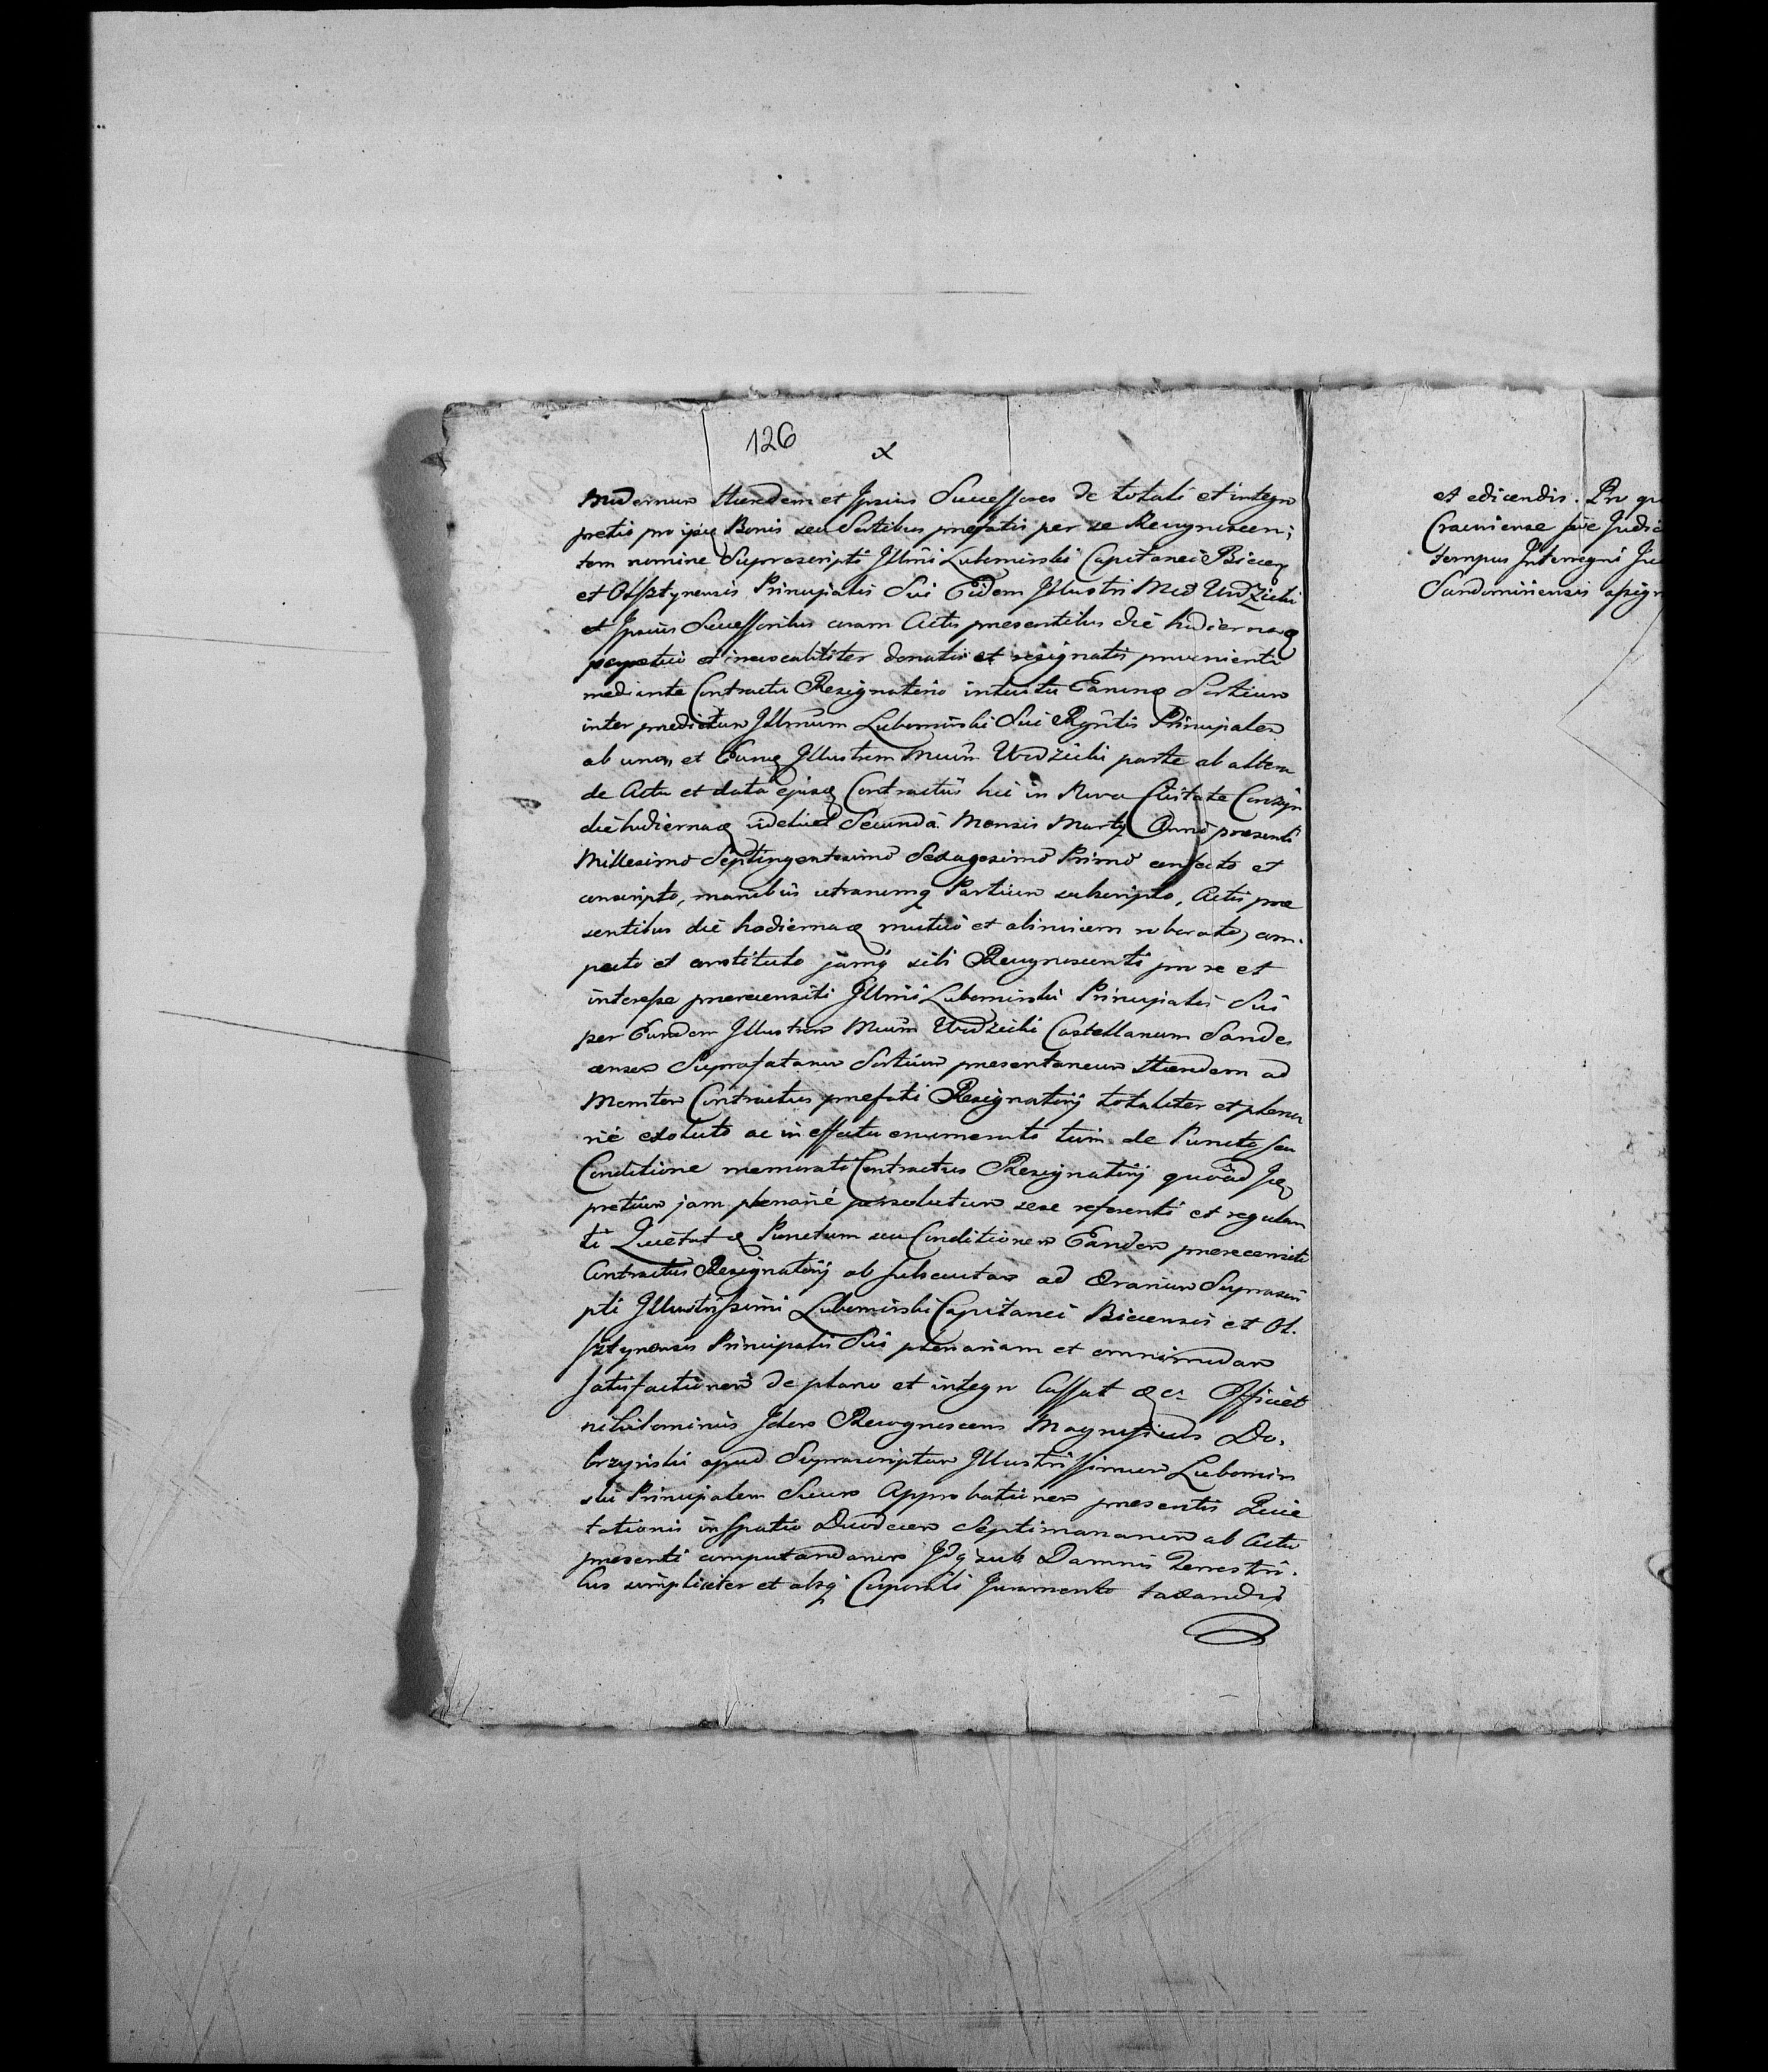 126
x
modernum Hæredem et Ipsius Successores de totali et integro
pretio pro ijsdē Bonis seu Sortibus prefatis per se Recognoscen;
tem nomine Suprascripti Illmi Lubomirski Capitanei Biecen
et Olsztynensis Principalis Sui Eidem Illustri Mco Wodzicki
et Ipsius Successoribus coram Actis presentibus die hodierna
perpetuo et irrevocabiliter donatis et resignatis provenienti
mediante Contractu Resignatorio intuitu Earum Sortium
inter predictum Illmum Lubomirski Sui Rgntis Principalem
ab una, et Eunq Illustrem Mcum Wodzicki parte ab altera
de Actu et data ejusq Contractus hic in Nova Civitate Corczyn
die hodierna videlicet Secunda Mensis Martij Anno presenti
Millesimo Septingentesimo Sexagesimo Primo confecto et
conscripto, manibus utrarumq Partium subscripto, Actis præ
sentibus die hodierna mutuo et abinvicem roborato, com.
parto et constituto jamq sibi Recognoscenti pro re et
interesse prerecensiti Illmi Lubomirski Principalis Sui
per Eundem Illustrem Mcum Wodzicki Castellanum Sande
censem Suprafatarum Sortium presentaneum Hæredem ad
Mentem Contractus prefati Resignatorij totaliter et plena
rie exoluto ac in effectu enumerato tum de Puncto seu
Conditione memorati Contractus Resignatorij quoad
pretium jam plenarié persolutum sese referenti et regulan
ti Quietat Punctum seu Conditionem Eandem prerecensiti
Contractus Resignatorij ob subsecutam ad Ærarium Suprascri
pti Illustrissimi Lubomirski Capitanei Biecensis et Ol.
sztynensis Principalis Sui plenariam et omnimodam
satisfactionem de plano et integro Cassat &c. Efficiet
nihilominus Idem Recognoscens Magnificus Do.
brzynski apud Suprascriptum Illustrissimum Lubomirs
ski Principalem Suum Approbationem presentis Quie
tationis in Spatio Duodecem Septimanarum ab Actu
presenti computandarum Idq sub Damnis Terrestri.
bus simpliciter et absq Corporali Juramento taxandis
et edicendis. Pro
Craciense sive
tempus Interregni
Sandomiriensis